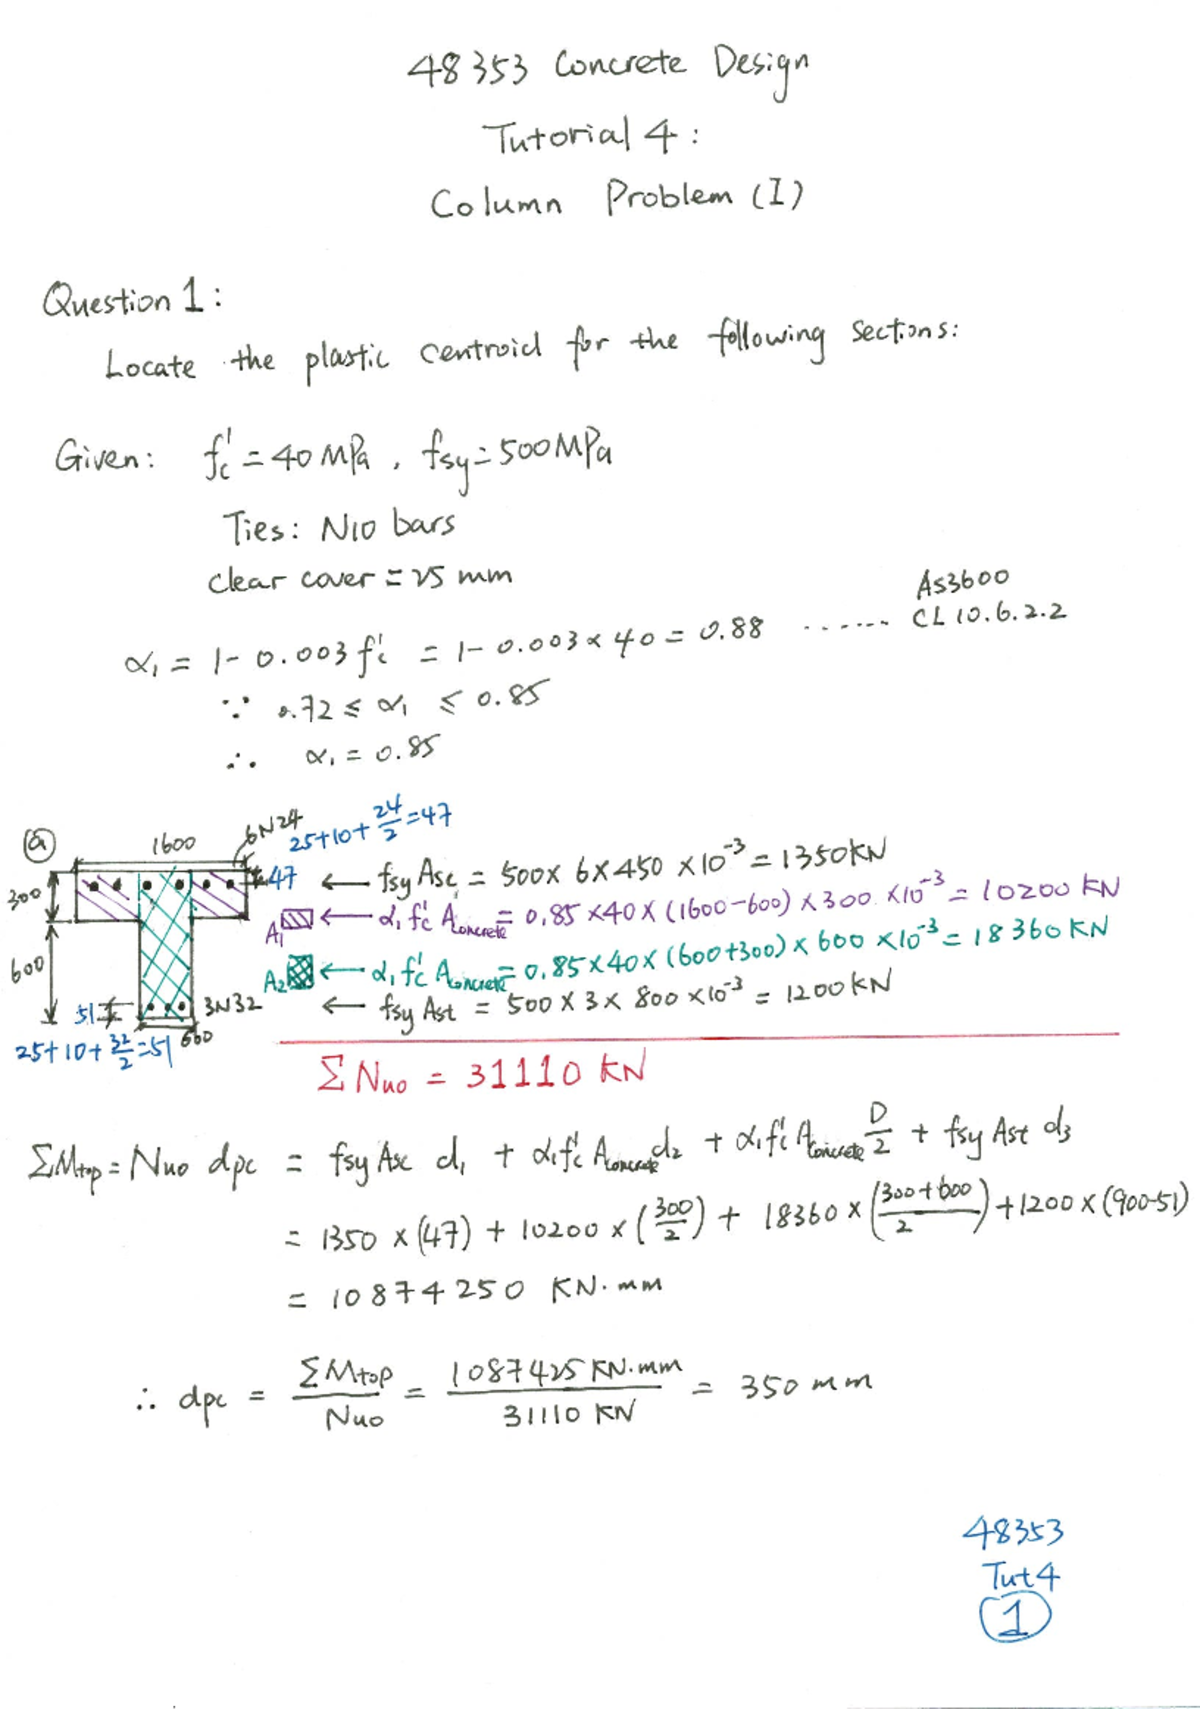 48353 Concrete Design
Tutorial 4:
Column Problem (I)
Question 1:
Locate the plastic centroid for the following sections:
Given: f'c = 40 MPa, fsy = 500 MPa
Ties: N10 bars
clear cover = 25 mm
AS3600
α1 = 1 - 0.003 f'c = 1 - 0.003 × 40 = 0.88 ...... CL 10.6.2.2
∵ 0.72 ≤ α1 ≤ 0.85
∴ α1 = 0.85
(a) 1600 6N24 25+10+24/2=47
300 47 ← fsy Asc = 500 × 6 × 450 × 10⁻³ = 1350 KN
A1 ← α1 f'c Aconcrete = 0.85 × 40 × (1600-600) × 300 × 10⁻³ = 10200 KN
600 A2 ← α1 f'c Aconcrete = 0.85 × 40 × (600+300) × 600 × 10⁻³ = 18360 KN
51 3N32 ← fsy Ast = 500 × 3 × 800 × 10⁻³ = 1200 KN
25+10+32/2=51 600
Σ Nuo = 31110 KN
ΣMtop = Nuo dpc = fsy Asc d1 + α1 f'c Aconcrete d2 + α1 f'c Aconcrete D/2 + fsy Ast d3
= 1350 × (47) + 10200 × (300/2) + 18360 × ((300+600)/2) + 1200 × (900-51)
= 10874250 KN·mm
∴ dpc = ΣMtop/Nuo = 1087425 KN·mm/31110 KN = 350 mm
48353
Tut 4
1